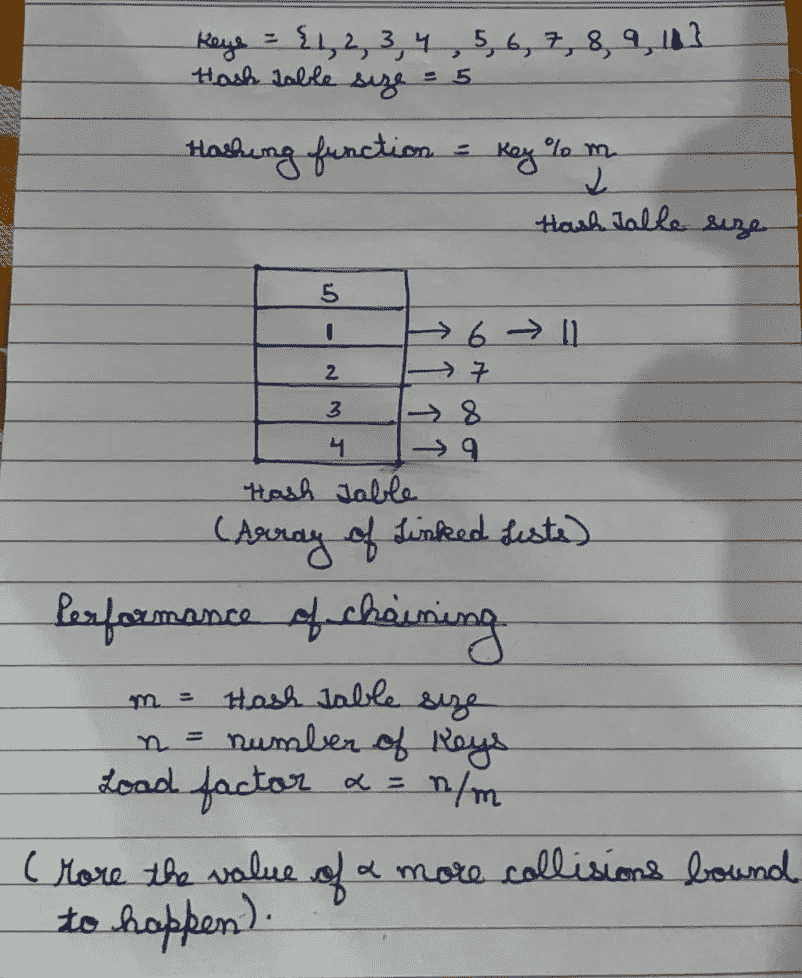 Keys = {1, 2, 3, 4, 5, 6, 7, 8, 9, 11}
Hash Table size = 5
Hashing function = Key % m
↓
Hash Table size
5
1 → 6 → 11
2 → 7
3 → 8
4 → 9
Hash Table
(Array of Linked Lists)
Performance of chaining
m = Hash Table size
n = number of Keys
Load factor α = n/m
(More the value of α more collisions bound
to happen).